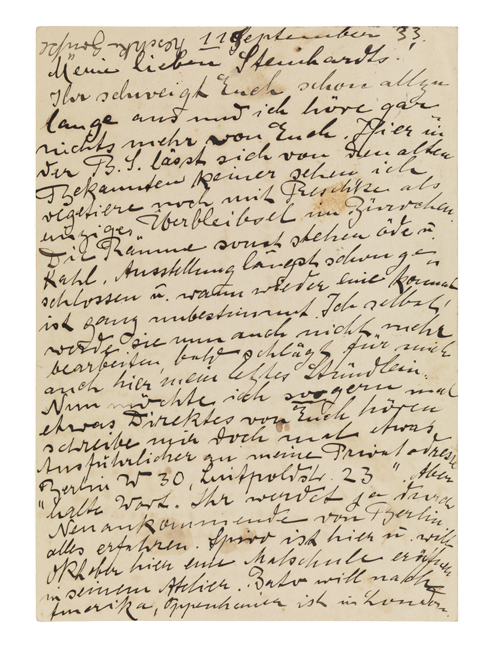 11 September 33.
Meine lieben Steinhardts!
Ihr schweigt Euch schon allzu
lange aus und ich höre gar
nichts mehr von Euch. Hier in
der B.S. lässt sich von den alten
Bekannten keiner sehen, ich
vegetiere noch mit Peschke als
einziges Überbleibsel im Bürochen.
Die Räume sonst stehen öde u.
Kahl. Ausstellung längst schon ge-
schlossen u. wann wieder eine kommt
ist ganz unbestimmt. Ich selbst
werde sie nun auch nicht mehr
bearbeiten, bald schlägt für mich
auch hier mein letztes Stündlein.
Nun möchte ich so gern mal
etwas Direktes von Euch hören
schreibe mir doch mal etwas
Ausführlicher an meine Privatadresse
Berlin W 30, Luitpoldstr. 23
letzte Wort. Ihr werdet ja durch
Neuankommende von Berlin
alles erfahren. Spiro ist hier u. will
Oktober hier eine Malschule eröffnen
in seinem Atelier. Bato will nach
Amerika, Oppenheimer ist in London.